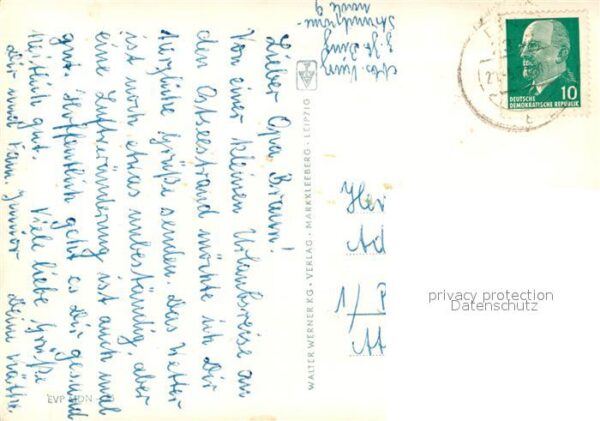 Lieber Opa Braun!
Von einer kleinen Urlaubsreise am
den Ostseestrand möchte ich Dir
herzliche Grüße senden. Das Wetter
ist noch etwas unbeständig, aber
eine Luftveränderung ist auch mal
gut. Hoffentlich geht es Dir gesund-
heitlich gut. Viele liebe Grüße
Dir und Fam. Junior Deine Käthe
WALTER WERNER KG · VERLAG · MARKKLEEBERG · LEIPZIG
EVP MDN
DEUTSCHE
DEMOKRATISCHE REPUBLIK
10
Her
Ad
1/
privacy protection
Datenschutz